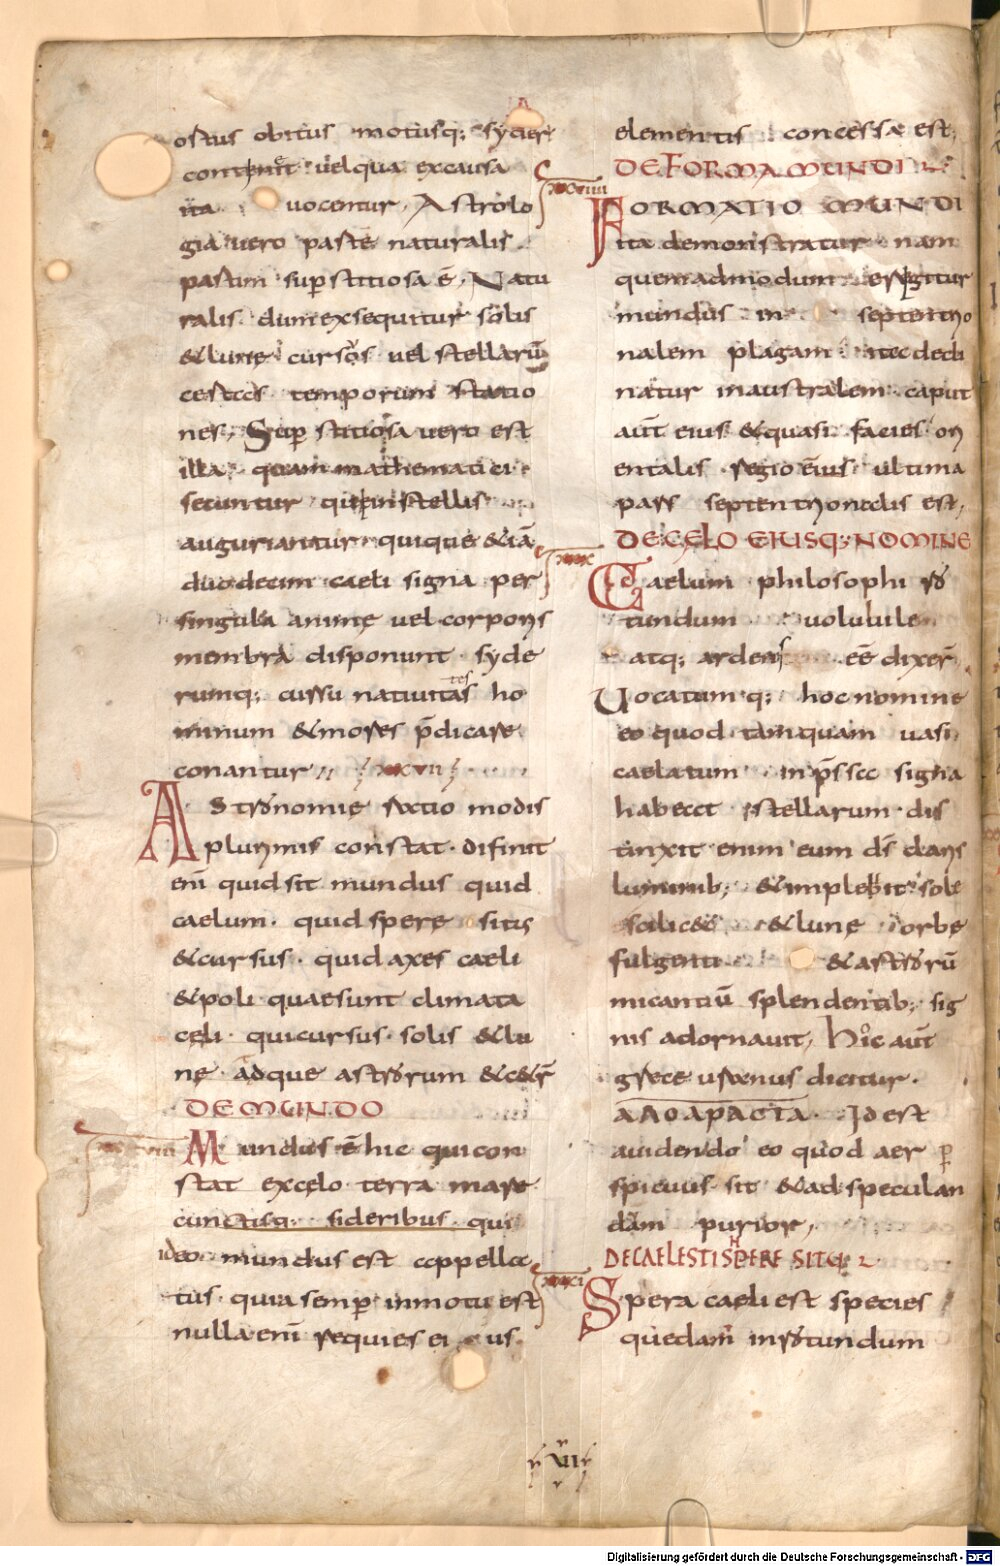 ostus obitus motusq; syder
continet uel qua ex causa
ita uocentur, Astrolo
gia uero partē naturalis
partim sup stitiosa ē, Natu
ralis dum exsequitur solis
& lune cursos uel stellarū
certas temporum statio
nes, Sup stitiosa uero est
illa quam mathematici
secuntur qui in stellis
auguriantur quique &iā
duodecim caeli signa per
singula anime uel corporis
membra disponunt syde
rumq; cursu natiuitates ho
minum & mores p̄dicare
conantur xxvii
Astronomie ratio modis
plurimis constat. difinit
eni quid sit mundus quid
caelum. quid spere situs
& cursus. quid axes caeli
& poli quae sunt climata
celi. qui cursus solis & lu
ne adque astrorum & c&ēr
DE MUNDO
xxviii Mundus ē hic qui con
stat ex celo terra mare
cunctisq; sideribus qui
ideo mundus est appella
tus. quia semp in motu est
nulla eni requies ei us
elementis concessa est,
DE FORMA MUNDI
xxviiii FORMATIO MUNDI
ita demonstratur nam
quemadmodum erigitur
mundus in septentrio
nalem plagam ita decli
natur in australem caput
aut̄ eius & quasi facies ori
entalis regio ēius ultima
pars septentrionalis est,
DE CELO EIUSQ; NOMINE
xxx Caelum philosophi ro
tundum uolubile
atq; ardens eē dixer̄
Uocatumq; hoc nomine
eo quod tamquam uas
caelatum inp̄ssa signa
habeat stellarum dis
tinxit enim eum d̄s claris
luminib; & impleuit sole
scilic& & lune orbe
fulgenti & astrorū
micantiū splendentib; sig
nis adornauit, Hic aūt
grece uranus dicitur.
ΑΠΟ ΑΡΑCΤΑ. Id est
auidendo eo quod aer p
spicuus sit & ad speculan
dām purior,
DE CAELESTI SPHERE SITU
xxxi Spera caeli est species
quedam in rotundum
xii
Digitalisierung gefördert durch die Deutsche Forschungsgemeinschaft - DFG